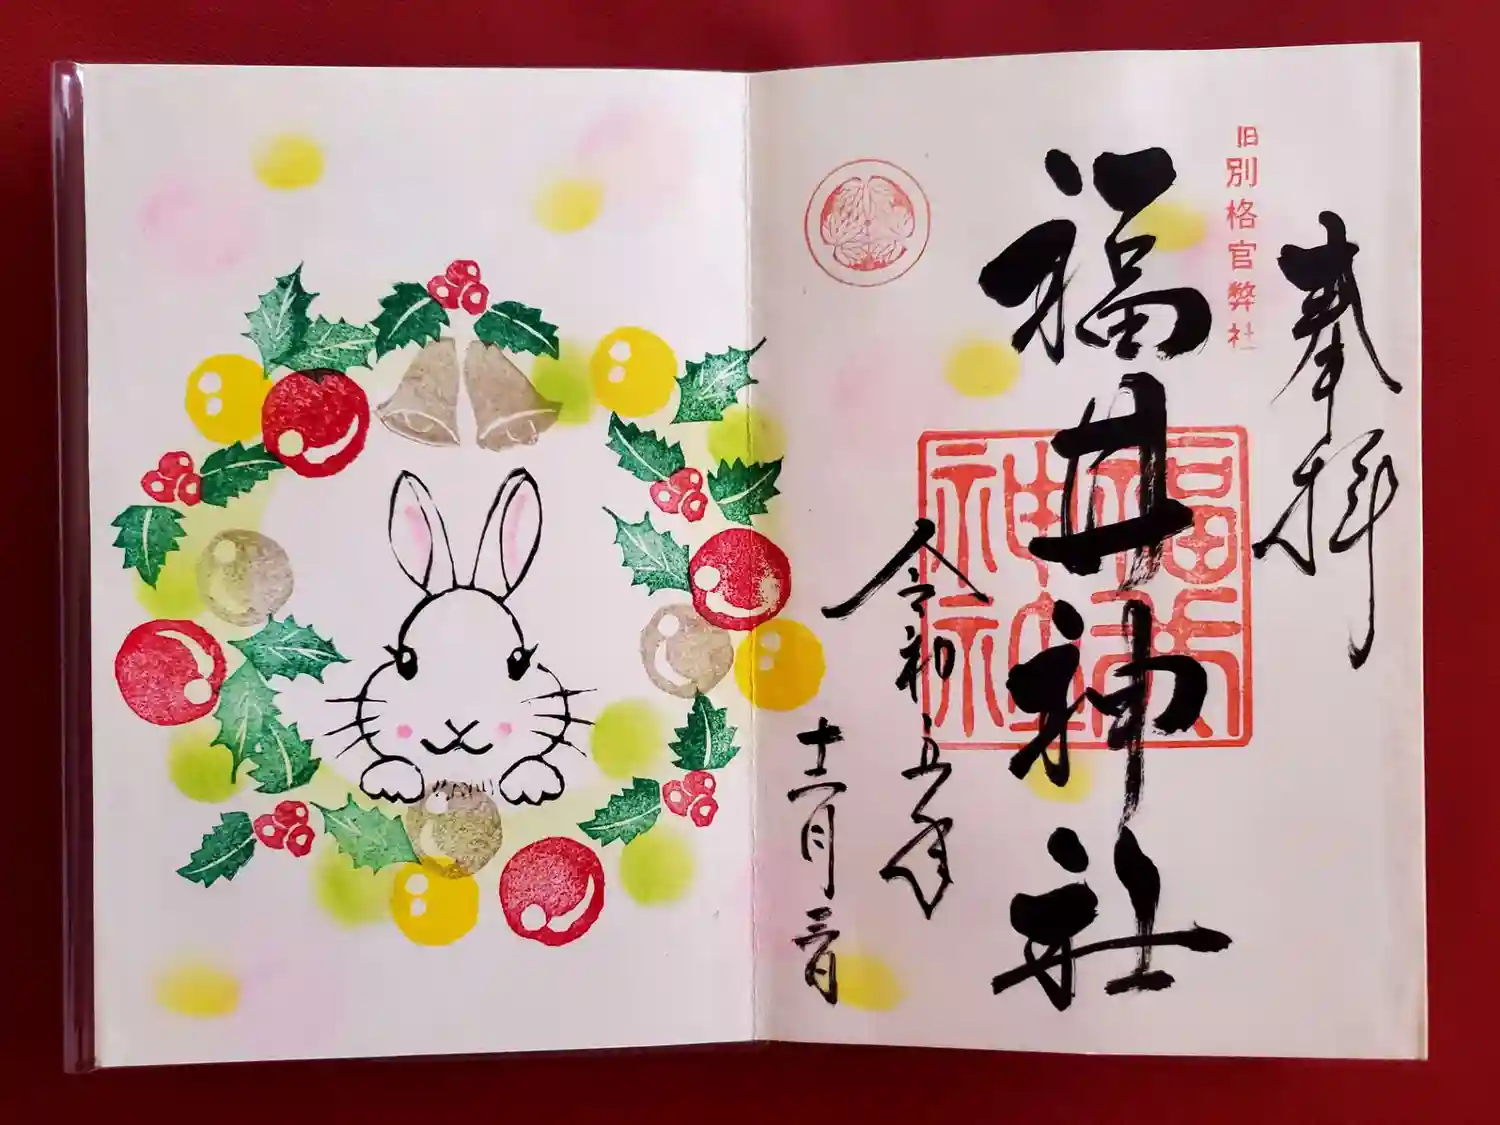 奉拝
旧別格官弊社
福井神社
福井神社
令和五年
十二月三日